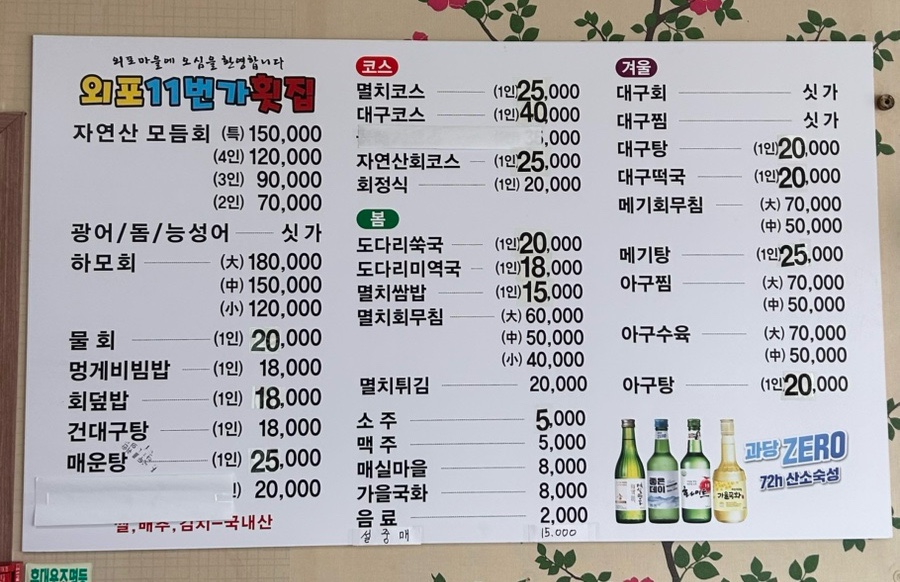 외포마을에 오심을 환영합니다
외포11번가횟집
자연산 모듬회 (특) 150,000
(4인) 120,000
(3인) 90,000
(2인) 70,000
광어/돔/능성어 싯가
하모회 (大) 180,000
(中) 150,000
(小) 120,000
물회 (1인) 20,000
멍게비빔밥 (1인) 18,000
회덮밥 (1인) 18,000
건대구탕 (1인) 18,000
매운탕 (1인) 25,000
20,000
배추,김치-국내산
코스
멸치코스 (1인) 25,000
대구코스 (1인) 40,000
,000
자연산회코스 (1인) 25,000
회정식 (1인) 20,000
봄
도다리쑥국 (1인) 20,000
도다리미역국 (1인) 18,000
멸치쌈밥 (1인) 15,000
멸치회무침 (大) 60,000
(中) 50,000
(小) 40,000
멸치튀김 20,000
소주 5,000
맥주 5,000
매실마을 8,000
가을국화 8,000
음료 2,000
설중매 15.000
겨울
대구회 싯가
대구찜 싯가
대구탕 (1인) 20,000
대구떡국 (1인) 20,000
메기회무침 (大) 70,000
(中) 50,000
메기탕 (1인) 25,000
아구찜 (大) 70,000
(中) 50,000
아구수육 (大) 70,000
(中) 50,000
아구탕 (1인) 20,000
좋은데이
가을국화
과당 ZERO
72h 산소숙성